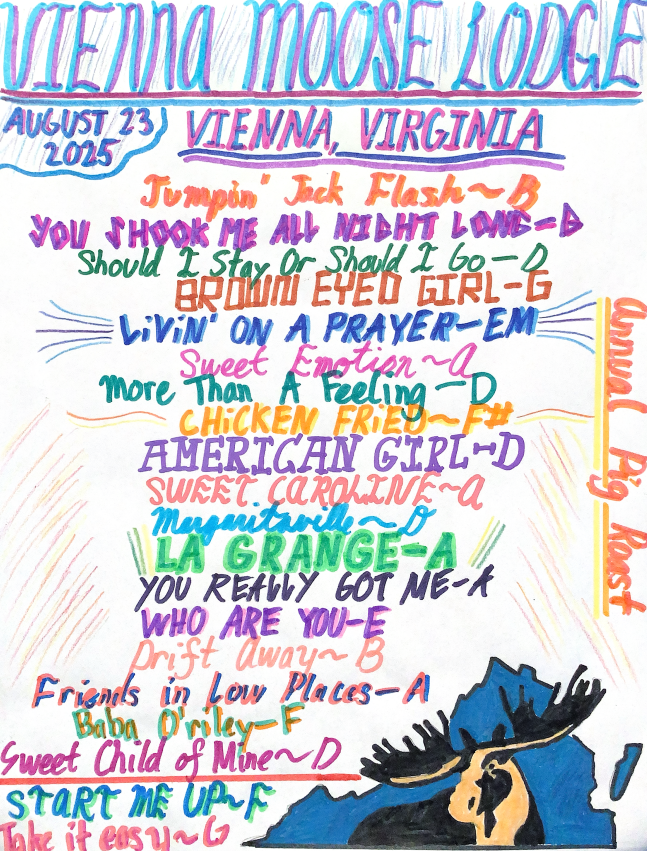 VIENNA MOOSE LODGE
AUGUST 23
2025
VIENNA, VIRGINIA
Jumpin' Jack Flash~B
YOU SHOOK ME ALL NIGHT LONG-G
Should I Stay Or Should I Go-D
BROWN EYED GIRL-G
LiViN' ON A PRAYER-EM
Sweet Emotion~A
More Than A Feeling-D
CHiCKEN FRiED~F#
AMERICAN GIRL-D
SWEET CAROLINE~A
Margaritaville~D
LA GRANGE-A
YOU REALLY GOT ME-A
WHO ARE YOU-E
Drift Away~B
Friends in Low Places-A
Baba O'riley-F
Sweet Child of Mine~D
START ME UP~F
Take it easy~G
Annual Pig Roast